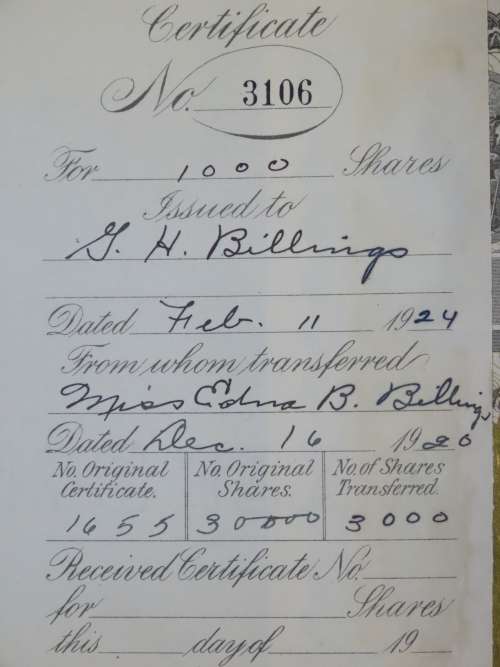 Certificate
No. 3106
For 1000 Shares
Issued to
G. H. Billings
Dated Feb. 11 1924
From whom transferred
Miss Edna B. Billings
Dated Dec. 16 1920
No. Original Certificate. No. Original Shares. No. of Shares Transferred.
1655 30000 3000
Received Certificate No.
for Shares
this day of 19